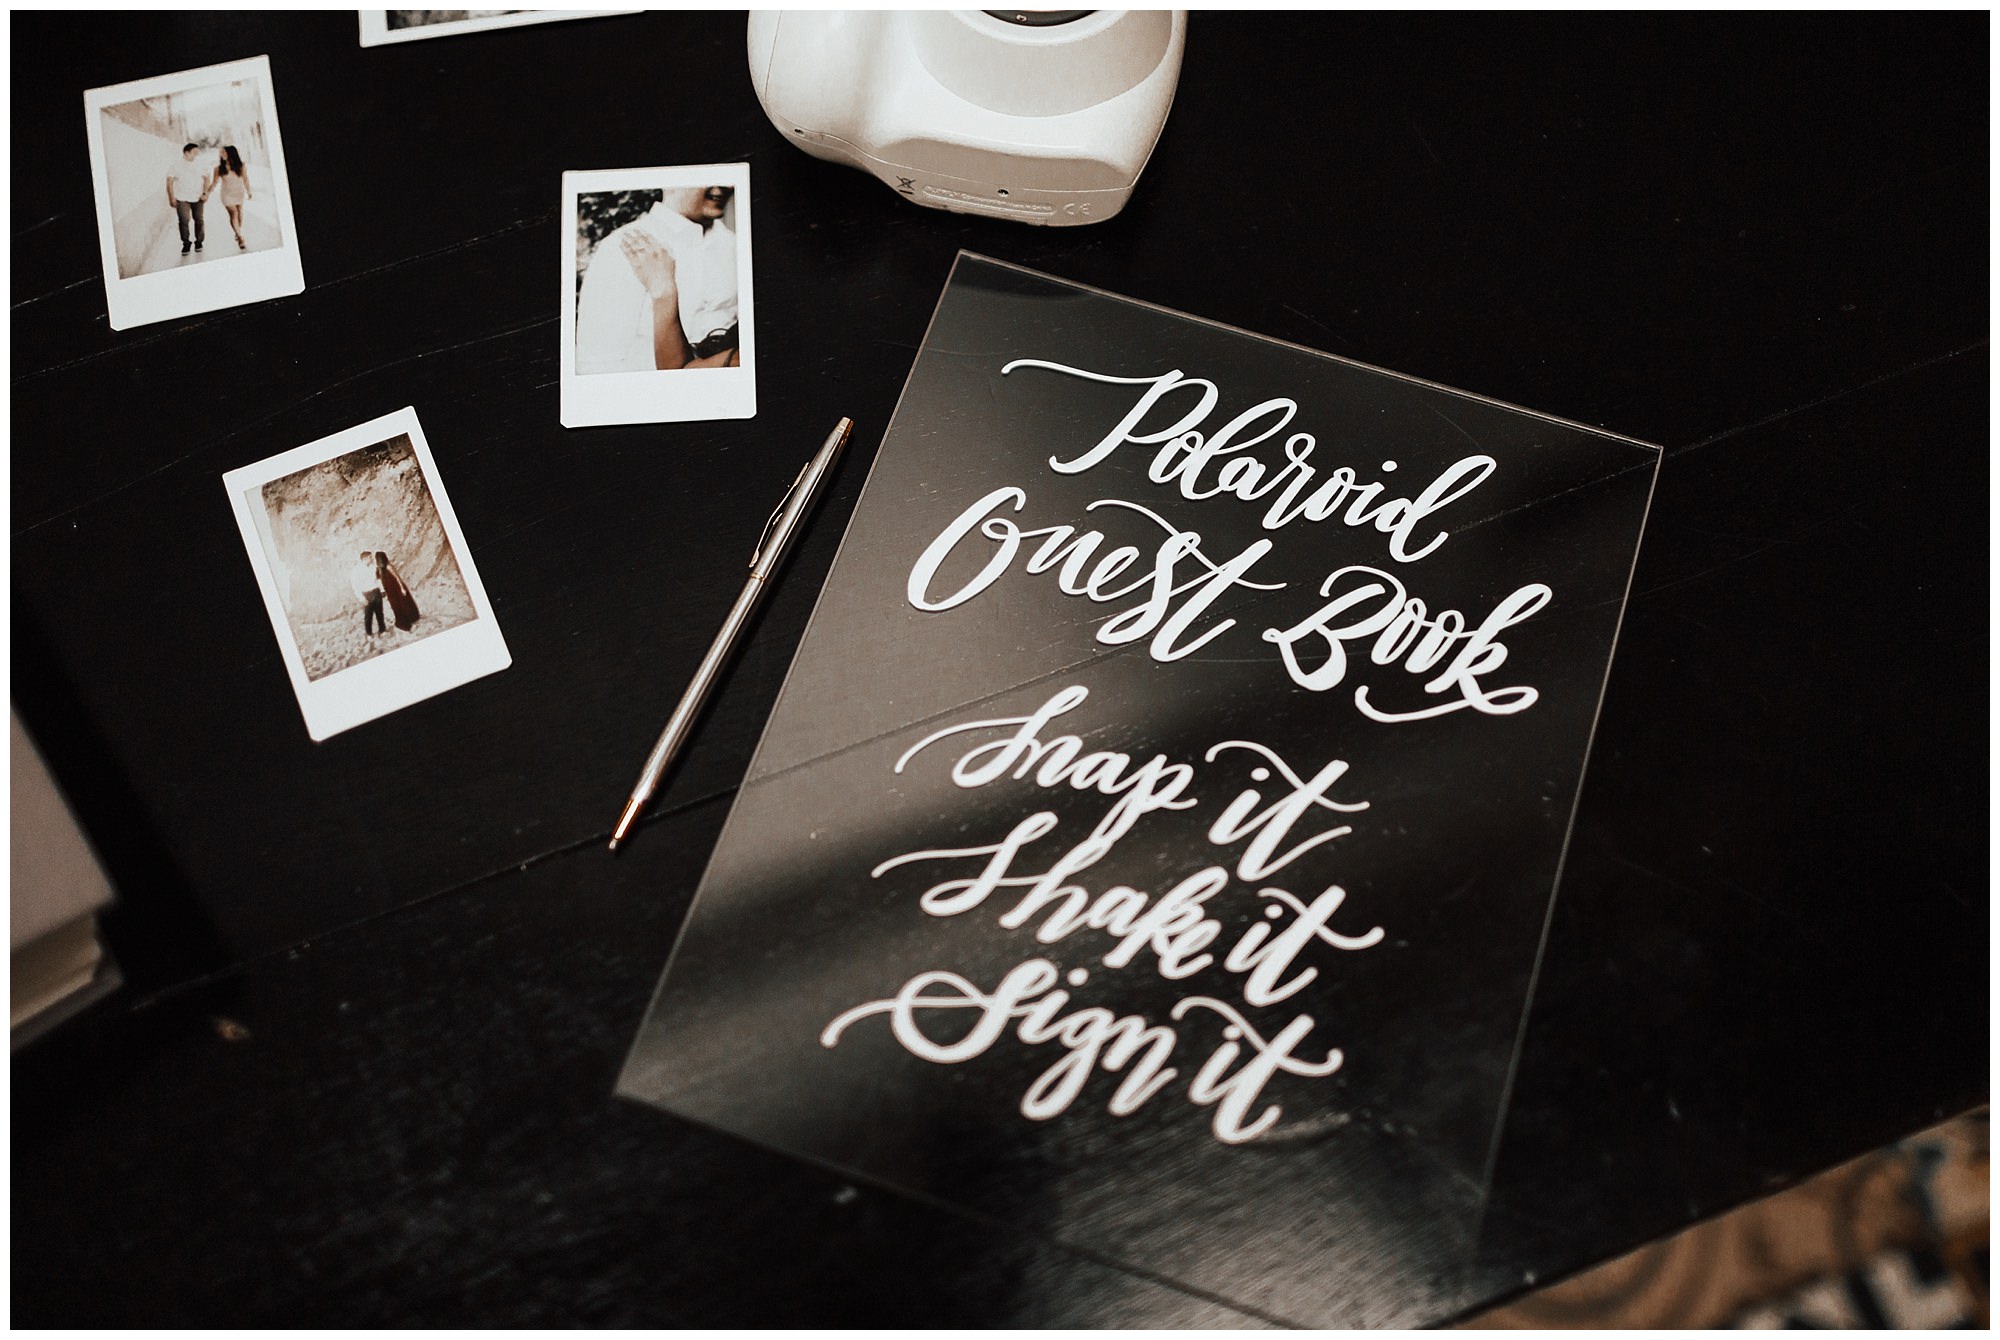 Polaroid
Guest Book
Snap it
Shake it
Sign it
CE